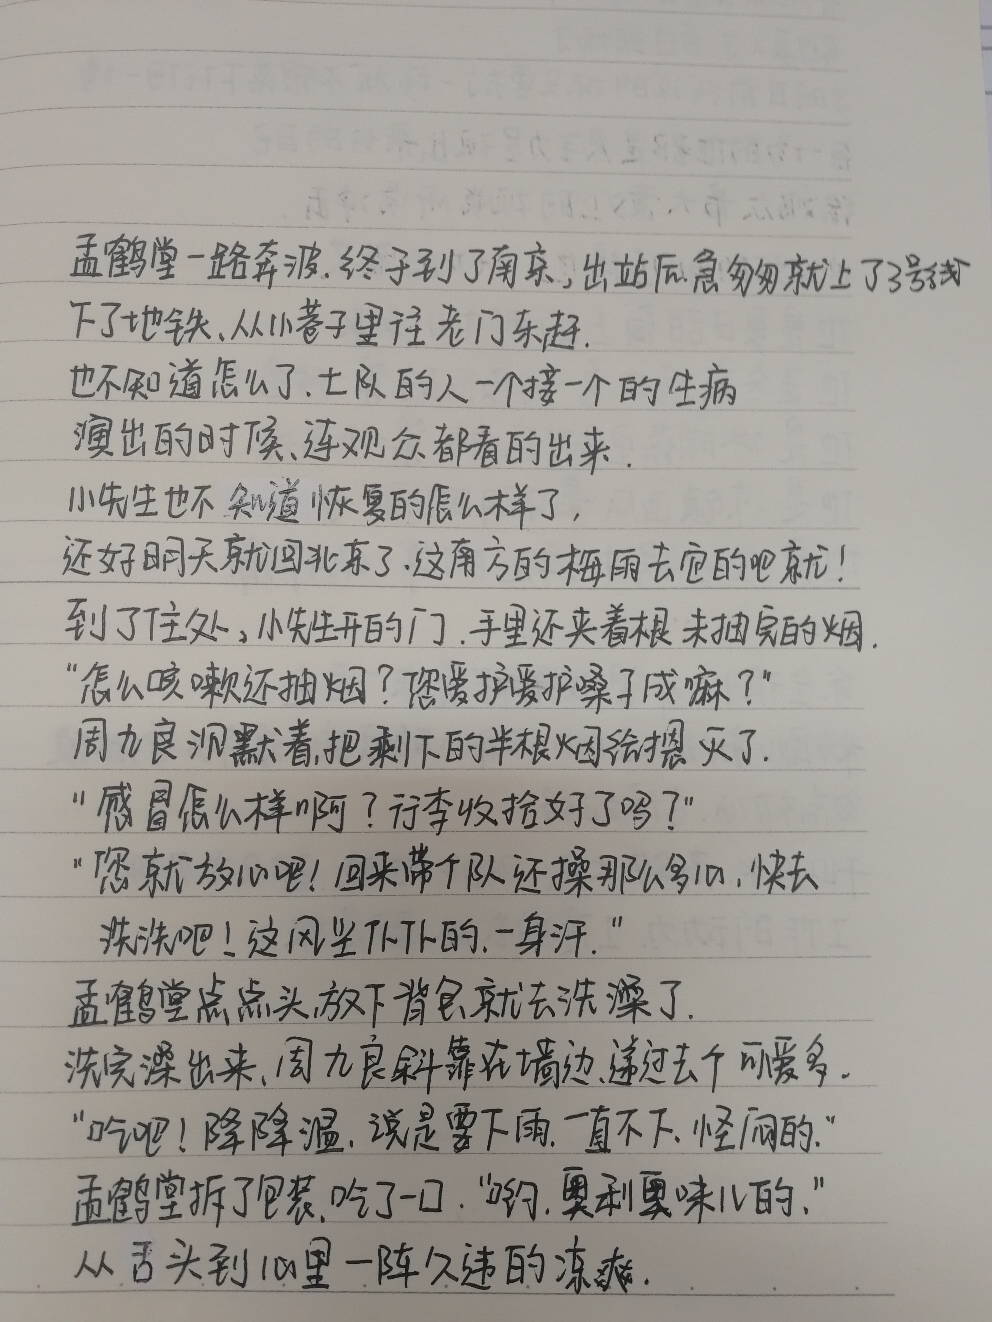 孟鹤堂一路奔波.终于到了南京,出站后急匆匆就上了3号线
下了地铁、从小巷子里往老门东赶.
也不知道怎么了.七队的人一个接一个的生病
演出的时候、连观众都看的出来.
小先生也不知道恢复的怎么样了,
还好明天就回北京了.这南方的梅雨去它的吧就!
到了住处,小先生开的门.手里还夹着根未抽完的烟.
“怎么咳嗽还抽烟?您爱护爱护嗓子成嘛?”
周九良沉默着,把剩下的半根烟给摁灭了.
“感冒怎么样啊?行李收拾好了吗?”
“您就放心吧!回来带个队还操那么多心.快去
洗洗吧!这风尘仆仆的.一身汗.”
孟鹤堂点点头,放下背包就去洗澡了.
洗完澡出来、周九良斜靠在墙边、递过去个可爱多.
“吃吧!降降温.说是要下雨.一直不下、怪闷的.”
孟鹤堂拆了包装、吃了一口.“哟.奥利奥味儿的.”
从舌头到心里一阵久违的凉爽.